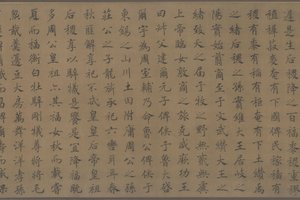 遲是生后稷降之百福黍稷重穋
稙稺菽麥奄有下國俾民稼穡有
稷有黍有稻有秬奄有下土纘禹
之緒后稷之孫實維大王居岐之
陽實始翦商至于文武纘大王之
緒致天之屆于牧之野無貳無虞
上帝臨女敦商之旅克咸厥功王
曰叔父建爾元子俾侯于魯大啟
爾宇為周室輔乃命魯公俾侯于
東錫之山川土田附庸周公之孫
莊公之子龍旂承祀六轡耳耳春
秋匪解享祀不忒皇皇后帝皇祖
后稷享以騂犧是饗是宜降福既
多周公皇祖亦其福女秋而載嘗
夏而楅衡白牡騂剛犧尊將將毛
炰胾羹籩豆大房萬舞洋洋孝孫